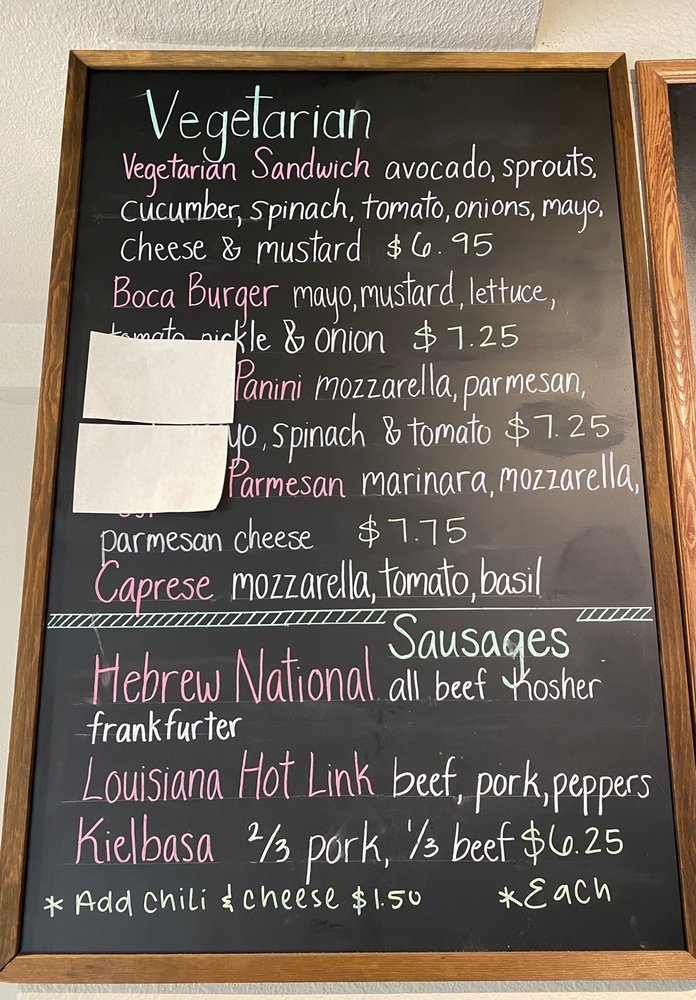 Vegetarian
Vegetarian Sandwich avocado, sprouts,
cucumber, spinach, tomato, onions, mayo,
cheese & mustard $6.95
Boca Burger mayo, mustard, lettuce,
tomato pickle & onion $7.25
Panini mozzarella, parmesan,
yo, spinach & tomato $7.25
Parmesan marinara, mozzarella,
parmesan cheese $7.75
Caprese mozzarella, tomato, basil
Sausages
Hebrew National all beef Kosher
frankfurter
Louisiana Hot Link beef, pork, peppers
Kielbasa 2/3 pork, 1/3 beef $6.25
* Add chili & cheese $1.50 *Each